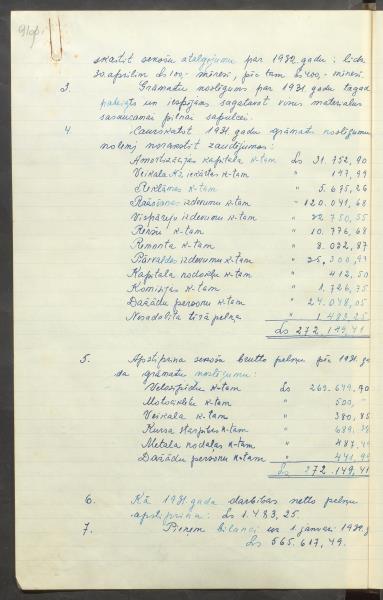 skaitīt sekošu atalgojumu par 1932. gadu: līdz
30. aprīlim Ls 100,- mēnesī, pēc tam Ls 400,- mēnesī.
3. Grāmatu noslēgums par 1931. gadu tagad
pabeigts un iespējams sagatavot visus materialus
sasaucamai pilnai sapulcei.
4. 1931. gadu grāmatu noslēgumu
nolemj norakstīt zaudējumos:
Amortizācijas kapitala k-tam Ls 31.752,90
Veikala iekārtas k-tam " 147,99
Reklāmas k-tam " 5.675,26
Ražošanas izdevumu k-tam " 120.041,68
Vispārēju izdevumu k-tam " 22.750,55
Renšu k-tam " 10.776,68
Remonta k-tam " 8.032,87
Pārvaldes izdevumu k-tam " 25.300,93
Kapitala nodokļu k-tam " 412,50
Komisijas k-tam " 1.726,75
Dažādu personu k-tam " 24.048,05
Nesadalīta tīrā peļņa " 1.483,25
Ls 272.149,41
5. Apstiprina sekošu brutto peļņu pēc 1931. ga-
da grāmatu noslēgumu:
Velosipēdu k-tam Ls 269.649,90
Motociklu k-tam " 500,
Veikala k-tam " 380,85
Kursa starpības k-tam " 689,
Metala nodaļas k-tam " 487,
Dažādu personu k-tam " 441,99
Ls 272.149,41
6. Kā 1931. gada darbības netto peļņu
apstiprina: Ls 1.483,25.
7. Pieņem bilanci uz 1. janvari 193
Ls 565.617,49.